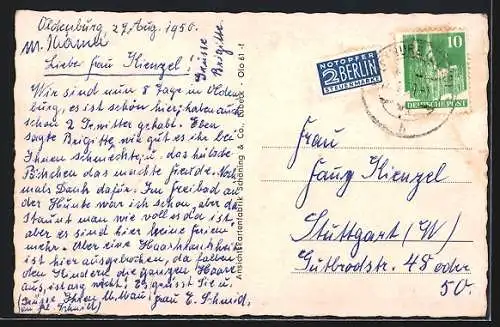 Oldenburg, 29. Aug. 1950.
Liebe Frau Kienzel!
Grüsse
Brigitte.
Wir sind nun 8 Tage in Olden
burg, es ist schön hier, haben auch
schon 2 Gewitter gehabt. Eben
sagte Brigitte wie gut es ihr bei
Ihnen schmeckte u. das hübsche
das machte Freude. Noch
mals Dank dafür. Im Freibad an
der Hunte war ich schon, aber da
staunt man wie voll es da ist,
aber es sind hier keine Ferien
mehr. Aber eine Haarkrankheit
ist hier ausgebrochen, da fallen
den Kindern die ganzen Haare
aus, ist arg nicht! Es grüsst Sie u.
Frau E. Schmid,
Ansichtskartenfabrik Schöning & Co., Lübeck · Olo 61
NOTOPFER
2 BERLIN
STEUERMARKE
10
DEUTSCHE POST
Frau
Kienzel
Stuttgart (W)
Gutbrodstr. 48 oder
50.